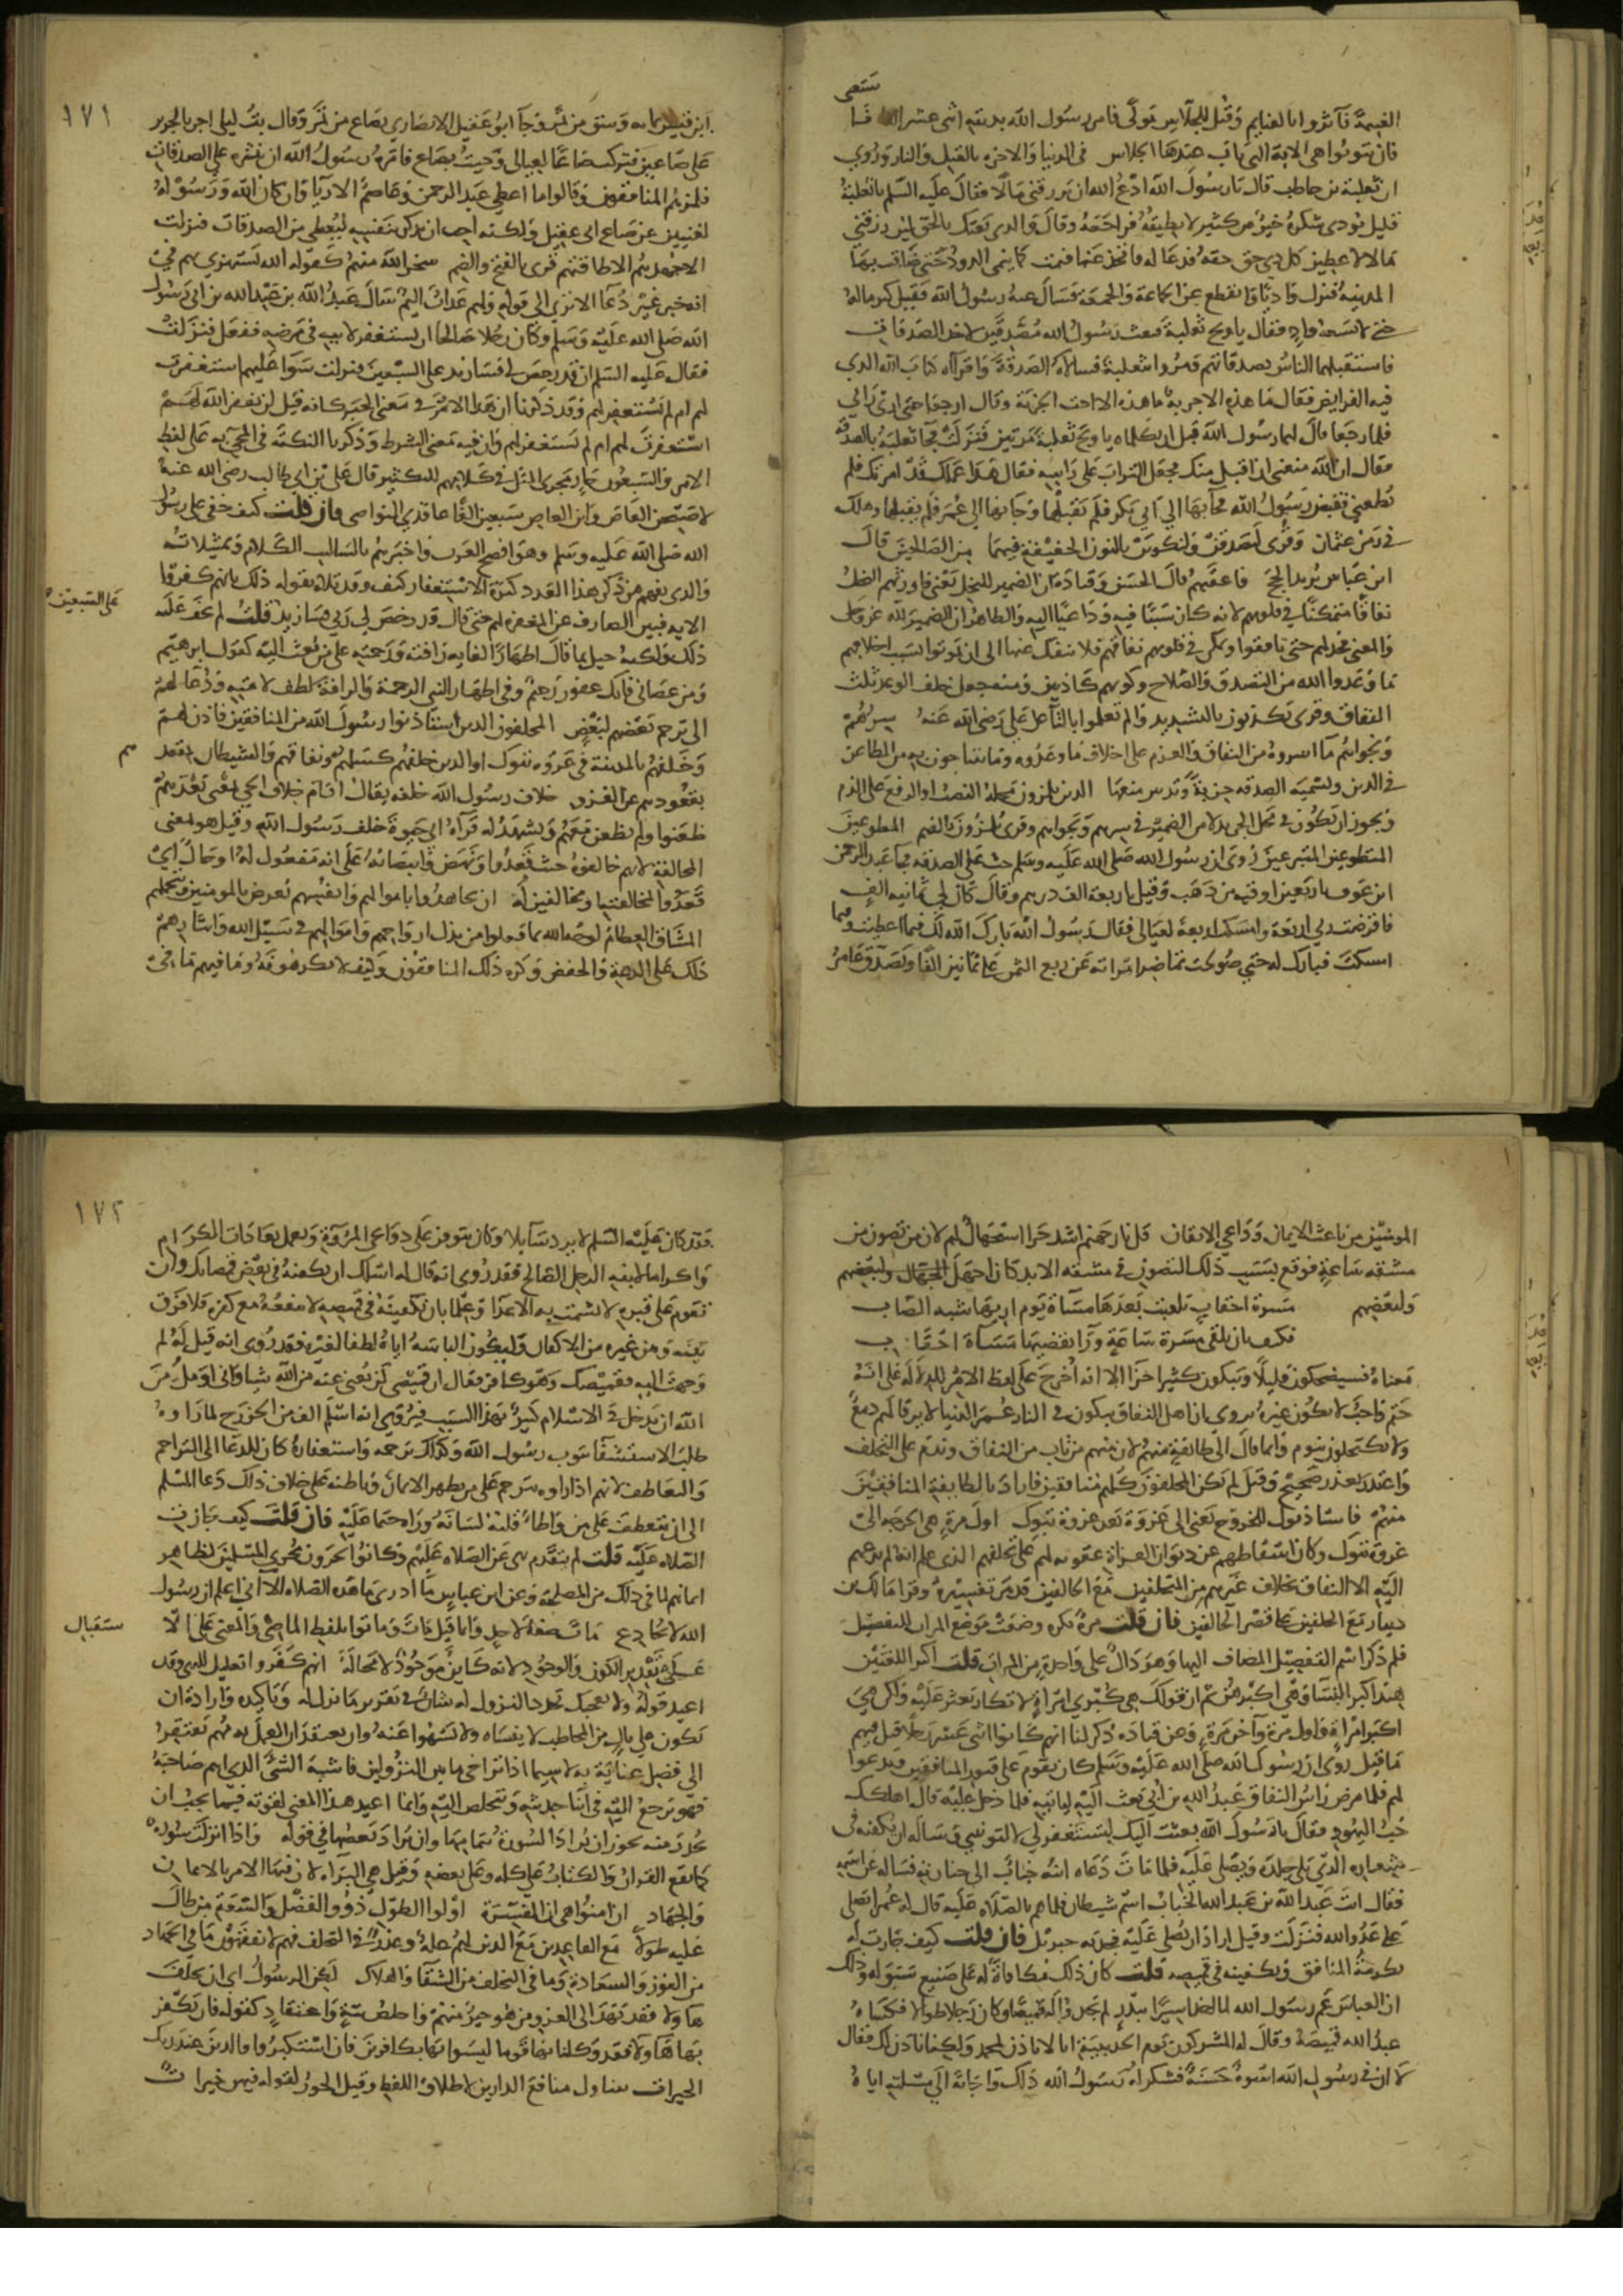 ستغنى
الغنيمة فآثروا بالغنايم وقتل للجلاس مولى فامر رسول الله بديته اثنى عشر الفا فاستغنى
فان يتوبوا هى الاية التى تاب عندها الجلاس في الدنيا والاخرة بالقتل والنار وروى
ان ثعلبة بن حاطب قال يا رسول الله ادع الله ان يرزقنى مالا فقال عليه السلم يا ثعلبة
قليل تودى شكره خير من كثير لا تطيقه فراجعه وقال والذى بعثك بالحق لين رزقنى
مالا لاعطين كل ذي حق حقه فدعا له فاتخذ غنما فنمت كما ينمى الدود حتى ضاقت بها
المدينة فنزل واديا وانقطع عن الجماعة والجمعة فسال عنه رسول الله فقيل كثر ماله
حتى لا يسعه واد فقال يا ويح ثعلبة فبعث رسول الله مصدقين لاخذ الصدقات
فاستقبلهما الناس بصدقاتهم ومروا بثعلبة فسالاه الصدقة واقرآه كتاب الله الذي
فيه الفرايض فقال ما هذه الا جزية ما هذه الا اخت الجزية وقال ارجعا حتى ارى رايي
فلما رجعا قال لهما رسول الله قبل ان يكلماه يا ويح ثعلبة مرتين فنزلت فجا ثعلبة بالصدقة
فقال ان الله منعنى ان اقبل منك فجعل التراب على راسه فقال هذا عملك قد امرتك فلم
تطعني فقبض رسول الله فجآ بها الى ابي بكر فلم يقبلها وجا بها الى عمر فلم يقبلها وهلك
في زمن عثمان وقرى لنصدقن ولنكونن بالنون الخفيفة فيهما من الصالحين قال
ابن عباس يريد الحج فاعقبهم قال الحسن وقتادة ان الضمير للبخل يعنى فاورثهم البخل
نفاقا متمكنا في قلوبهم لانه كان سببا فيه وداعيا اليه والظاهر ان الضمير لله عز وجل
والمعنى فخذلهم حتى نافقوا وتمكن في قلوبهم نفاقهم فلا ينفك عنها الى ان يموتوا بسبب اخلافهم
ما وعدوا الله من التصدق والصلاح وكونهم كاذبين ومنه جعل خلف الوعد ثلث
النفاق وقرى يكذبون بالتشديد والم تعلموا بالتآ عن علي رضى الله عنه سرهم
ونجواهم مآ اسروه من النفاق والعزم على اخلاف ما وعدوه وما يتناجون به من المطاعن
في الدين وتسمية الصدقة جزية وتدبير منعها الذين يلمزون محله النصب او الرفع على الذم
ويجوز ان يكون في محل الجر بدلا من الضمير في سرهم ونجواهم وقرى يلمزون بالضم المطوعين
المتطوعين المتبرعين روى ان رسول الله صلى الله عليه وسلم حث على الصدقة فجا عبد الرحمن
ابن عوف باربعين اوقية من ذهب وقيل باربعة الف درهم وقال كان لي ثمانية الف
فاقرضت ربي اربعة وامسكت اربعة لعيالى فقال رسول الله بارك الله لك فيما اعطيت وفيما
امسكت فبارك له حتى صولحت تماضر امراته عن ربع الثمن على ثمانين الفا وتصدق عامر
١٧١
ابن قيس بمايه وسق من تمر وجآ ابو عقيل الانصاري بصاع من تمر وقال بت ليلى اجر بالجرير
على صاعين فتركت صاعا لعيالى وجيت بصاع فامره رسول الله ان ينثره على الصدقات
فلمزهم المنافقون وقالوا ما اعطى عبد الرحمن وعاصم الا ريآ وان كان الله ورسوله
لغنيين عن صاع ابى عقيل ولكنه احب ان يذكر نفسه ليعطى من الصدقات فنزلت
الا جهدهم الا طاقتهم قرى بالفتح والضم سخر الله منهم كقوله الله يستهزئ بهم في
انه خبر غير دعآ الا ترى الى قوله ولهم عذاب اليم سال عبد الله بن عبد الله بن ابي رسول
الله صلى الله عليه وسلم وكان رجلا صالحا ان يستغفر لابيه في مرضه ففعل فنزلت
فقال عليه السلم ان قد رخص لي فسازيد على السبعين فنزلت سوا عليهم استغفرت
لهم ام لم تستغفر لهم وقد ذكرنا ان هذا الامر في معنى الخبر كانه قيل لن يغفر الله لهم
استغفرت لهم ام لم تستغفر لهم وان فيه معنى الشرط وذكرنا النكتة في المجئ به على لفظ
الامر والسبعون جار مجرى المثل في كلامهم للتكثير قال على بن ابى طالب رضى الله عنه
لاصبحن العاص وابن العاص سبعين الفا عاقدي النواصى فان قلت كيف خفى على رسول
الله صلى الله عليه وسلم وهو افصح العرب واخبرهم باساليب الكلام وتمثيلاته
والذى يفهم من ذكر هذا العدد كثرة الاستغفار كيف وقد تلاه بقوله ذلك بانهم كفروا
على السبعين
الايه فبين الصارف عن المغفرة لهم حتى قال قد رخص لي ربي فسازيد قلت لم يخف عليه
ذلك ولكنه خيل بما قال اظهارا لغاية رافته ورحمته على من بعث اليه كقول ابرهيم
ومن عصانى فانك غفور رحيم وفى اظهار النبى الرحمة والرافة لطف لامته ودعآ لهم
الى ترحم بعضهم لبعض المخلفون الذين استاذنوا رسول الله من المنافقين فاذن لهم
وخلفهم بالمدينة في غزوه تبوك او الذين خلفهم كسلهم ونفاقهم والشيطان بمقعدهم
بقعودهم عن الغزو خلاف رسول الله خلفه يقال اقام خلاف الحي يعنى بعدهم
ظعنوا ولم يظعن معهم ويشهد له قرآه ابى حيوة خلف رسول الله وقيل هو بمعنى
المخالفة لانهم خالفوه حيث قعدوا ونهض وانتصابه على انه مفعول له او حال اي
قعدوا لمخالفته او مخالفين له ان يجاهدوا باموالهم وانفسهم تعريض بالمومنين وبتحملهم
المشاق العظام لوجه الله بما فعلوا من بذل ارواحهم واموالهم في سبيل الله وايثارهم
ذلك على الدعة والخفض وكره ذلك المنافقون وكيف لا يكرهونه وما فيهم ما في
المومنين من باعث الايمان وداعى الايقان قل نار جهنم اشد حرا استجهال لهم لان من تصون من
مشقة ساعة فوقع بسبب ذلك التصون في مشقة الابد كان اجهل الجهال ولبعضهم
ولبعضهم مسرة احقاب تلقيت بعدها مسآة يوم اريها شبه الصاب
فكيف بان تلقى مسرة ساعة ورآ تقضيها مسآة احقاب
معناه فسيضحكون قليلا ويبكون كثيرا جزآ الا انه اخرج على لفظ الامر للدلالة على انه
حتم واجب لا يكون غيره يروى ان اهل النفاق يبكون في النار عمر الدنيا لا يرقا لهم دمع
ولا يكتحلون بنوم وانما قال الى طائفة منهم لان منهم من تاب من النفاق وندم على التخلف
واعتذر بعذر صحيح وقيل لم يكن المخلفون كلهم منافقين فاراد بالطايفة المنافقين
منهم فاستاذنوك للخروج يعنى الى غزوة بعد غزوة تبوك اول مرة هى الخرجة الى
غزوة تبوك وكان اسقاطهم عن ديوان الغزاة عقوبة لهم على تخلفهم الذي علم الله انه لم يدعهم
اليه الا النفاق بخلاف غيرهم من المتخلفين مع الخالفين قد مر تفسيره وقرا مالك بن
دينار مع الخلفين على قصر الخالفين فان قلت مرة نكرة وضعت موضع المرات للتفضيل
فلم ذكر اسم التفضيل المضاف اليها وهو دال على واحدة من المرات قلت اكثر اللغتين
هند اكبر النسآ وهى اكبرهن ثم ان قولك هى كبرى امراة لا تكاد تعثر عليه ولكن هي
اكبر امراة واول مرة وآخر مرة وعن قتاده ذكر لنا انهم كانوا اثنى عشر رجلا قيل فيهم
ما قيل روى ان رسول الله صلى الله عليه وسلم كان يقوم على قبور المنافقين ويدعوا
لهم فلما مرض راس النفاق عبد الله بن ابي بعث اليه لياتيه فلما دخل عليه قال اهلكك
حب اليهود فقال يا رسول الله بعثت اليك لتستغفر لي لا لتونبني وساله ان يكفنه في
شعاره الذي يلى جلده ويصلى عليه فلما مات دعاه ابنه حباب الى جنازته فساله عن اسمه
فقال انت عبد الله بن عبد الله الحباب اسم شيطان فلما هم بالصلاة عليه قال له عمر اتصلى
على عدو الله فنزلت وقيل اراد ان يصلى عليه فجذبه جبريل فان قلت كيف جازت له
تكرمة المنافق وتكفينه في قميصه قلت كان ذلك مكافاة له على صنيع سبق له وذلك
ان العباس عم رسول الله لما اخذ اسيرا ببدر لم يجدوا له قميصا وكان رجلا طوالا فكساه
عبد الله قميصه وقال له المشركون يوم الحديبية انا لا ناذن لمحمد ولكنا ناذن لك فقال
لا ان لي في رسول الله اسوة حسنة فشكر له رسول الله ذلك واجابة الى مسئلته اياه
١٧٢
فقد كان عليه السلم لا يرد سآيلا وكان يتوفر على دواعى المروة ويعمل بعادات الكرام
واكراما لابنه الرجل الصالح فقد روى انه قال له اسئلك ان تكفنه في بعض قمصانك وان
تقوم على قبره لا يشمت به الاعدا وعلما بان تكفينه في قميصه لا ينفعه مع كفره فلا فرق
بينه وبين غيره من الاكفان وليكون الباسه اياه لطفا لغيره فقد روى انه قيل له لم
وجهت اليه بقميصك وهو كافر فقال ان قميصى لن يغنى عنه من الله شيا وانى اومل من
الله ان يدخل في الاسلام كثير بهذا السبب فيروى انه اسلم الف من الخزرج لما راوه
طلب الاستشفآ بثوب رسول الله وكذلك ترحمه واستغفاره كان للدعآ الى التراحم
والتعاطف لانهم اذا راوه يترحم على من يظهر الايمان وباطنه على خلاف ذلك دعا المسلم
الى ان يتعطف على من واطا قلبه لسانه وراه حتما عليه فان قلت كيف جازت
الصلاه عليه قلت لم يتقدم نهى عن الصلاه عليهم وكانوا يجرون مجرى المسلمين لظاهر
ايمانهم لما في ذلك من المصلحة وعن ابن عباس ما ادرى ما هذه الصلاه الا انى اعلم ان رسول
الله لا يخادع مات صفة لاحد وانما قيل مات وماتوا بلفظ الماضى والمعنى على الا
ستقبال
على تقدير الكون والوجود لانه كاين موجود لا محالة انهم كفروا تعليل للنهى وقد
اعيد قوله ولا تعجبك لان تجدد النزول له شان في تقرير ما نزل له وتاكيده وارادة ان
تكون على بال من المخاطب لا ينساه ولا يسهوا عنه وان يعتقد ان العمل به مهم يفتقر
الى فضل عناية به لا سيما اذا تراخى ما بين النزولين فاشبه الشئ الذي اهم صاحبه
فهو يرجع اليه في اثنا حديثه ويتخلص اليه وانما اعيد هذا المعنى لقوته فيما يجب ان
يحذر منه يجوز ان يراد السورة بتمامها وان يراد بعضها في قوله واذا انزلت سورة
كما يقع القران والكتاب على كله وعلى بعضه وقيل هى البرآه لان فيها الامر بالايمان
والجهاد ان آمنوا هى ان المفسرة اولوا الطول ذووا الفضل والسعة من طال
عليه طولا مع القاعدين مع الذين لهم علة وعذر في التخلف فهم لا يفقهون ما في الجهاد
من الفوز والسعادة وما في التخلف من الشقآ والهلاك لكن الرسول اى ان تخلف
هاولا فقد نهد الى الغزو من هو خير منهم واخلص نية واعتقاد كقوله فان يكفر
بها هاولا فقد وكلنا بها قوما ليسوا بها بكافرين فان استكبروا فالذين عند ربك
الخيرات يتناول منافع الدارين لاطلاق اللفظ وقيل الحور لقوله فيهن خيرات